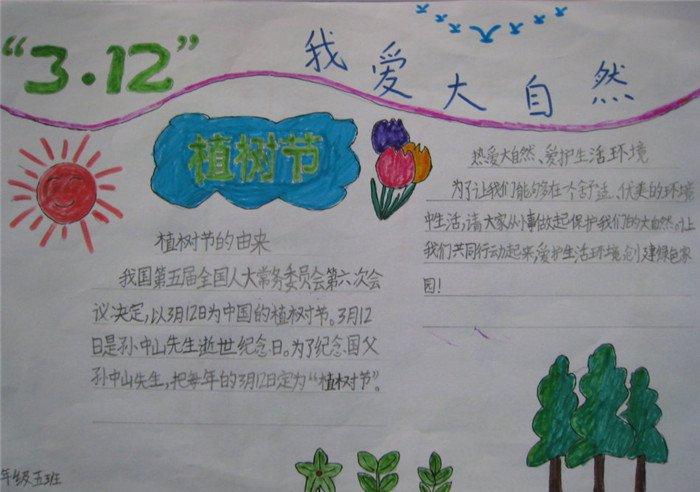 “3·12”
我爱大自然
植树节
植树节的由来
我国第五届全国人大常务委员会第六次会
议决定,以3月12日为中国的植树节。3月12
日是孙中山先生逝世纪念日。为了纪念国父
孙中山先生,把每年的3月12日定为“植树节”。
热爱大自然、爱护生活环境
为了让我们能够在个舒适、优美的环境
中生活,请大家从小事做起保护我们的大自然,让
我们共同行动起来,爱护生活环境,创建绿色家
园!
年级五班